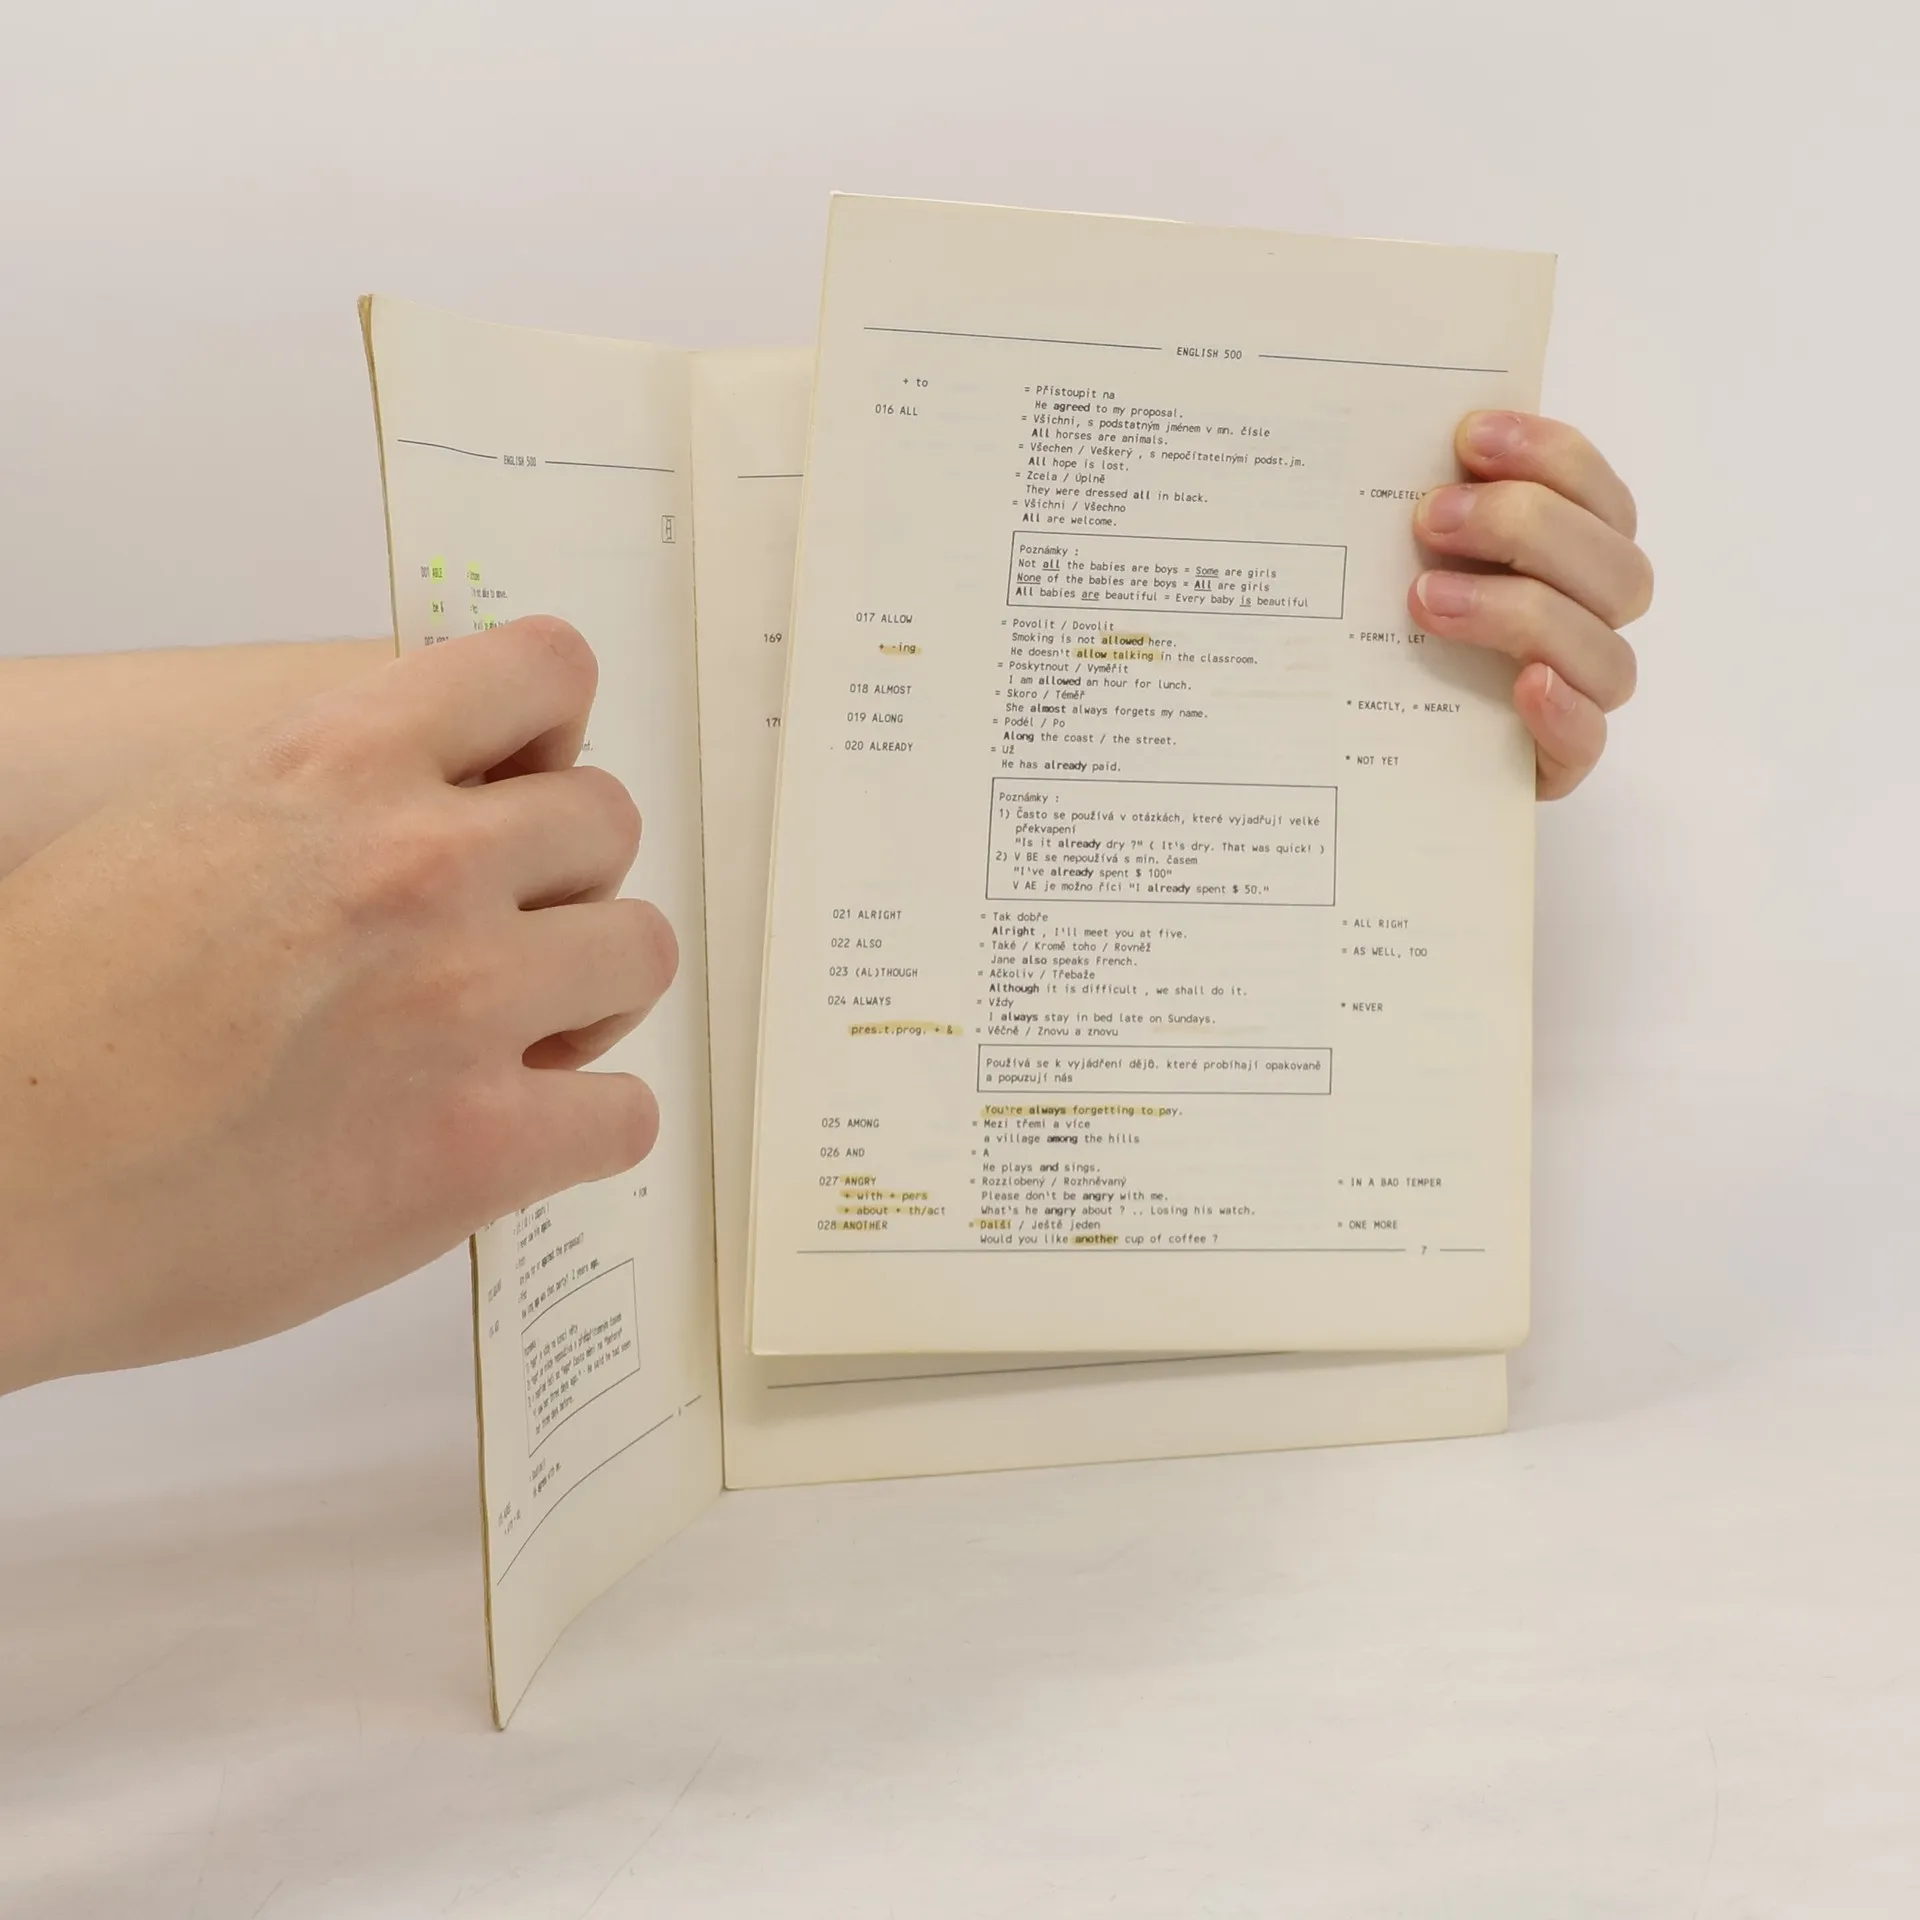 ENGLISH 500
001 ABLE
be &
ENGLISH 500
+ to = Přistoupit na
He agreed to my proposal.
016 ALL = Všichni, s podstatným jménem v mn. čísle
All horses are animals.
= Všechen / Veškerý , s nepočitatelnými podst.jm.
All hope is lost.
= Zcela / Úplně = COMPLETELY
They were dressed all in black.
= Všichni / Všechno
All are welcome.
Poznámky :
Not all the babies are boys = Some are girls
None of the babies are boys = All are girls
All babies are beautiful = Every baby is beautiful
017 ALLOW = Povolit / Dovolit = PERMIT, LET
Smoking is not allowed here.
+ -ing He doesn't allow talking in the classroom.
= Poskytnout / Vyměřit
I am allowed an hour for lunch.
018 ALMOST = Skoro / Téměř * EXACTLY, = NEARLY
She almost always forgets my name.
019 ALONG = Podél / Po
Along the coast / the street.
020 ALREADY = Už * NOT YET
He has already paid.
Poznámky :
1) Často se používá v otázkách, které vyjadřují velké
překvapení
"Is it already dry ?" ( It's dry. That was quick! )
2) V BE se nepoužívá s min. časem
"I've already spent $ 100"
V AE je možno říci "I already spent $ 50."
021 ALRIGHT = Tak dobře = ALL RIGHT
Alright , I'll meet you at five.
022 ALSO = Také / Kromě toho / Rovněž = AS WELL, TOO
Jane also speaks French.
023 (AL)THOUGH = Ačkoliv / Třebaže
Although it is difficult , we shall do it.
024 ALWAYS = Vždy * NEVER
I always stay in bed late on Sundays.
pres.t.prog. + & = Věčně / Znovu a znovu
Používá se k vyjádření dějů, které probíhají opakovaně
a popuzují nás
You're always forgetting to pay.
025 AMONG = Mezi třemi a více
a village among the hills
026 AND = A
He plays and sings.
027 ANGRY = Rozzlobený / Rozhněvaný = IN A BAD TEMPER
+ with + pers Please don't be angry with me.
+ about + th/act What's he angry about ? .. Losing his watch.
028 ANOTHER = Další / Ještě jeden = ONE MORE
Would you like another cup of coffee ?
7
169